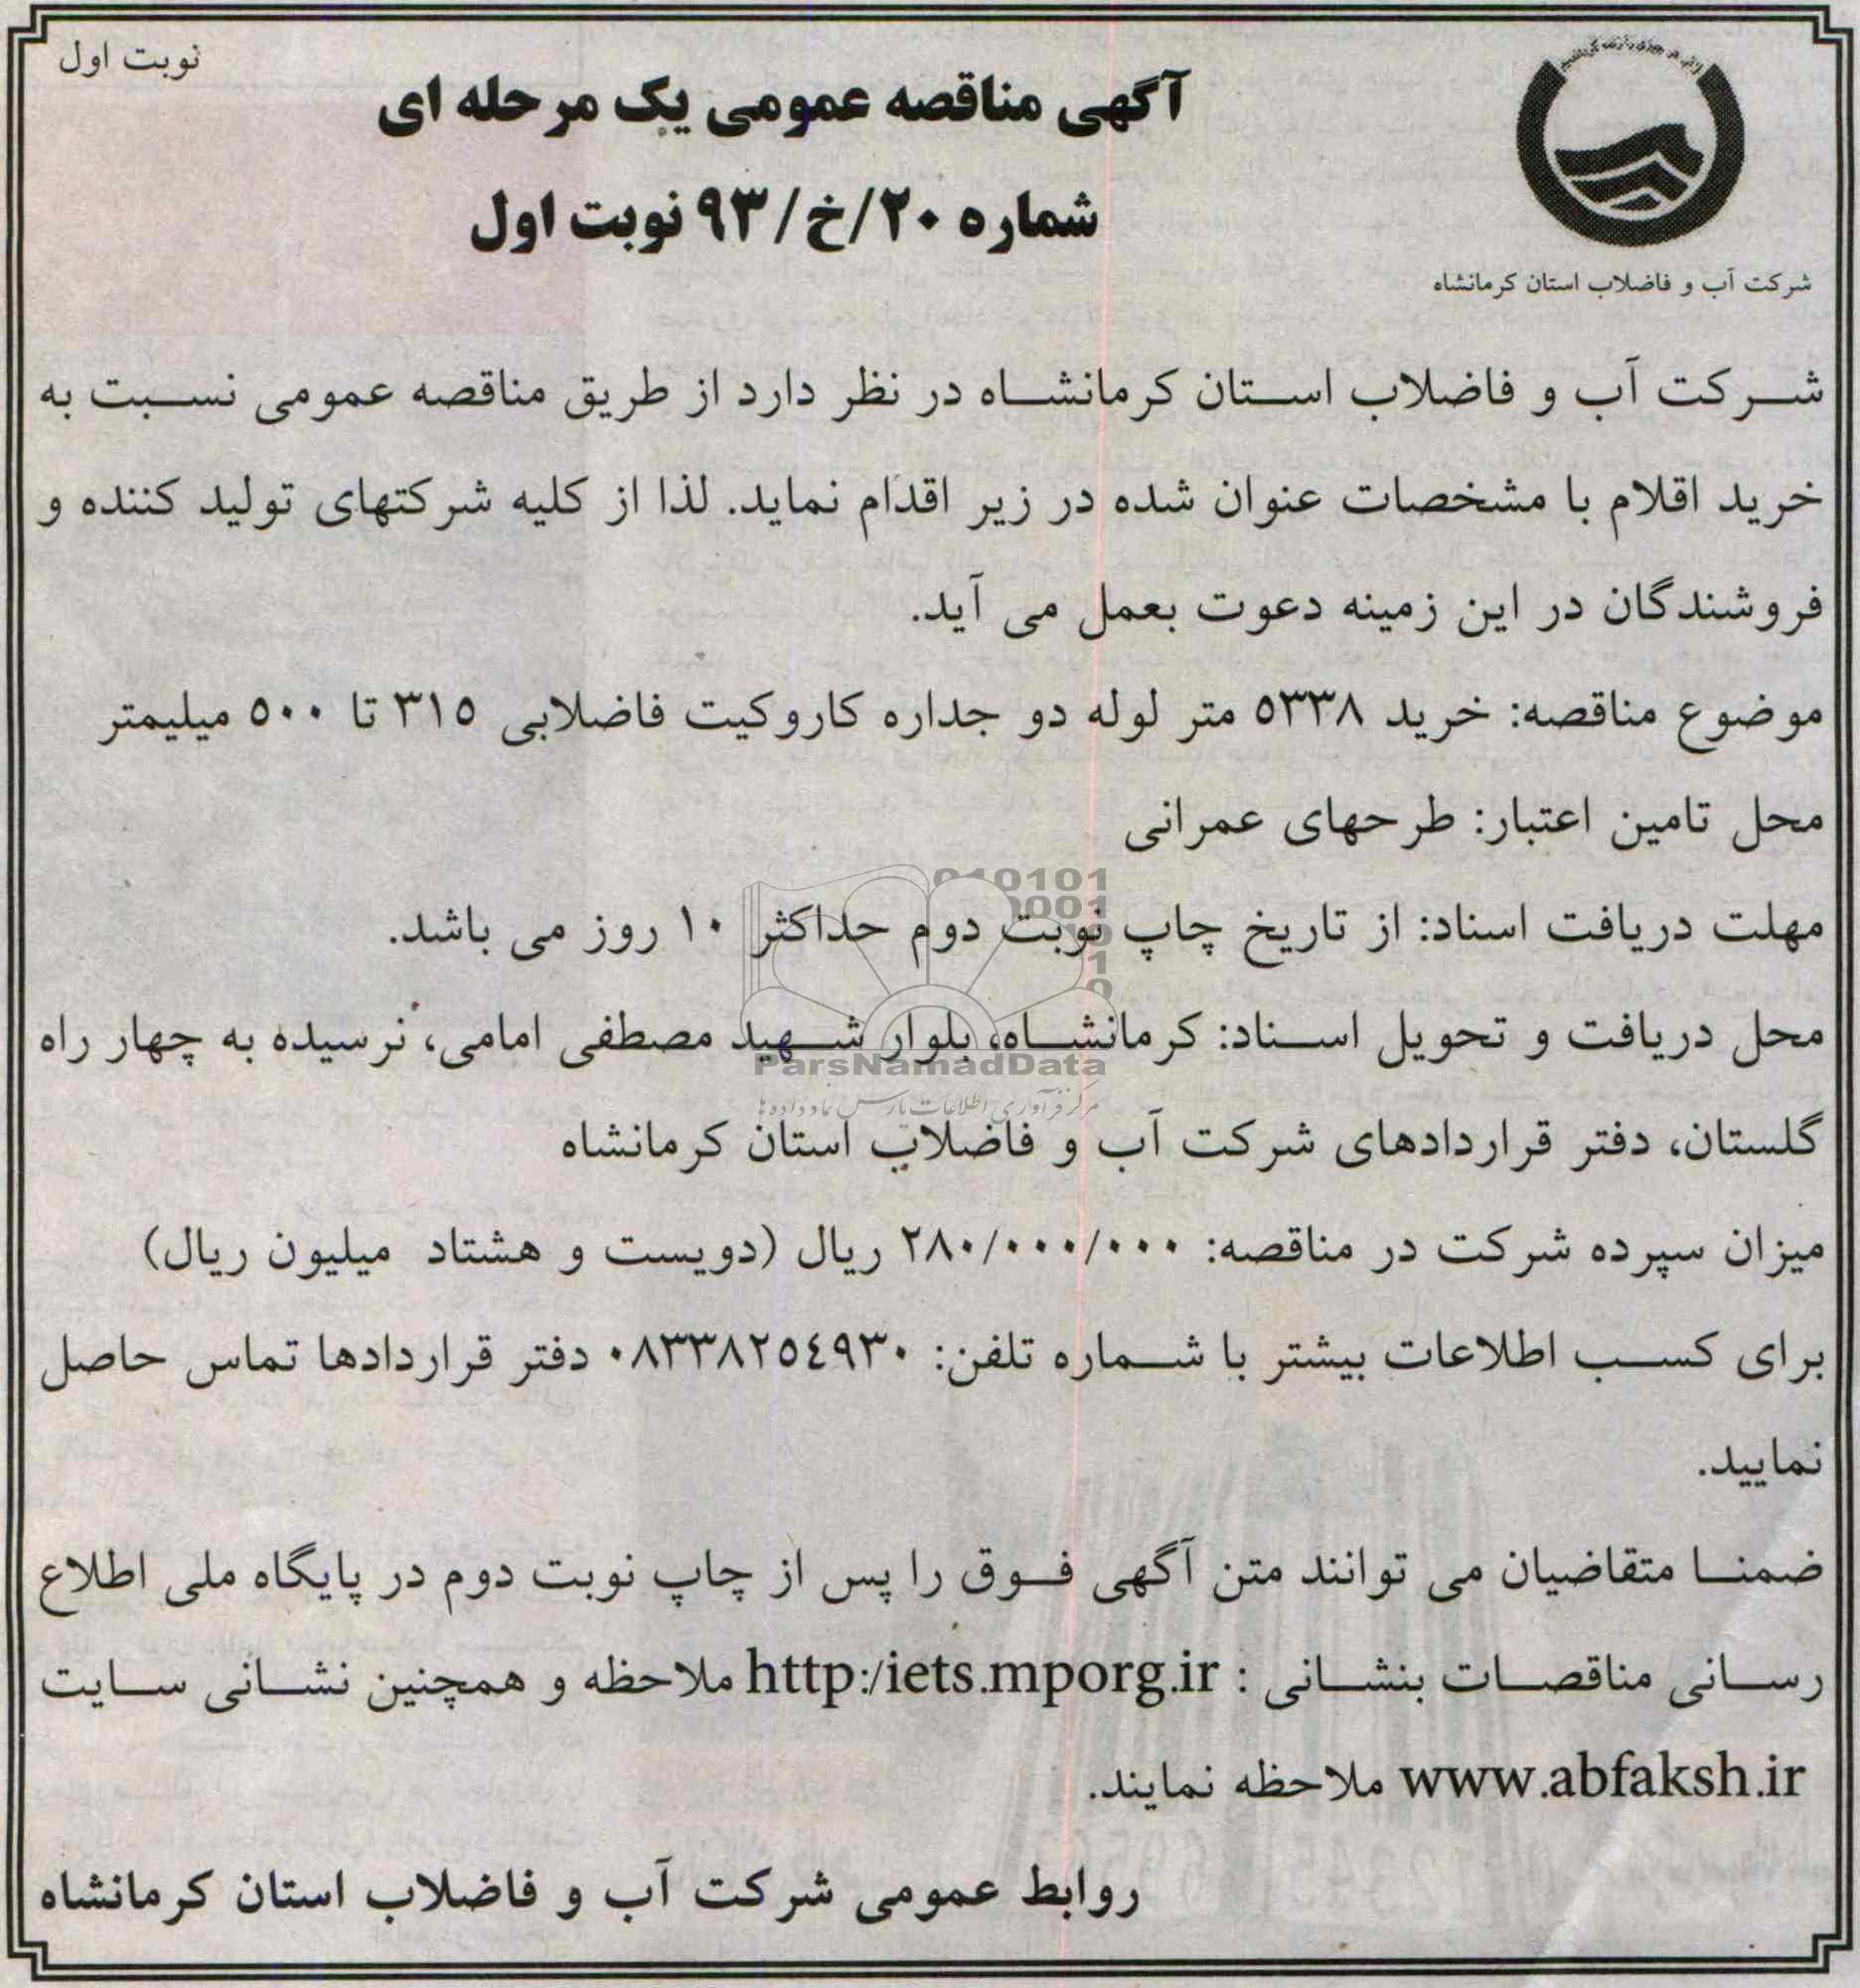 نوبت اول
آگهی مناقصه عمومی یک مرحله ای
شماره ۲۰/خ/۹۳ نوبت اول
شرکت آب و فاضلاب استان کرمانشاه
شرکت آب و فاضلاب استان کرمانشاه در نظر دارد از طریق مناقصه عمومی نسبت به
خرید اقلام با مشخصات عنوان شده در زیر اقدام نماید. لذا از کلیه شرکتهای تولید کننده و
فروشندگان در این زمینه دعوت بعمل می آید.
موضوع مناقصه: خرید ۵۳۳۸ متر لوله دو جداره کاروکیت فاضلابی ۳۱۵ تا ۵۰۰ میلیمتر
محل تامین اعتبار: طرحهای عمرانی
مهلت دریافت اسناد: از تاریخ چاپ نوبت دوم حداکثر ۱۰ روز می باشد.
محل دریافت و تحویل اسناد: کرمانشاه، بلوار شهید مصطفی امامی، نرسیده به چهار راه
گلستان، دفتر قراردادهای شرکت آب و فاضلاب استان کرمانشاه
میزان سپرده شرکت در مناقصه: ۲۸۰/۰۰۰/۰۰۰ ریال (دویست و هشتاد میلیون ریال)
برای کسب اطلاعات بیشتر با شماره تلفن: ۰۸۳۳۸۲۵٤۹۳۰ دفتر قراردادها تماس حاصل
نمایید.
ضمنا متقاضیان می توانند متن آگهی فوق را پس از چاپ نوبت دوم در پایگاه ملی اطلاع
رسانی مناقصات بنشانی : http:/iets.mporg.ir ملاحظه و همچنین نشانی سایت
www.abfaksh.ir ملاحظه نمایند.
روابط عمومی شرکت آب و فاضلاب استان کرمانشاه
ParsNamadData
مرکز فرآوری اطلاعات پارس نماد داده ها